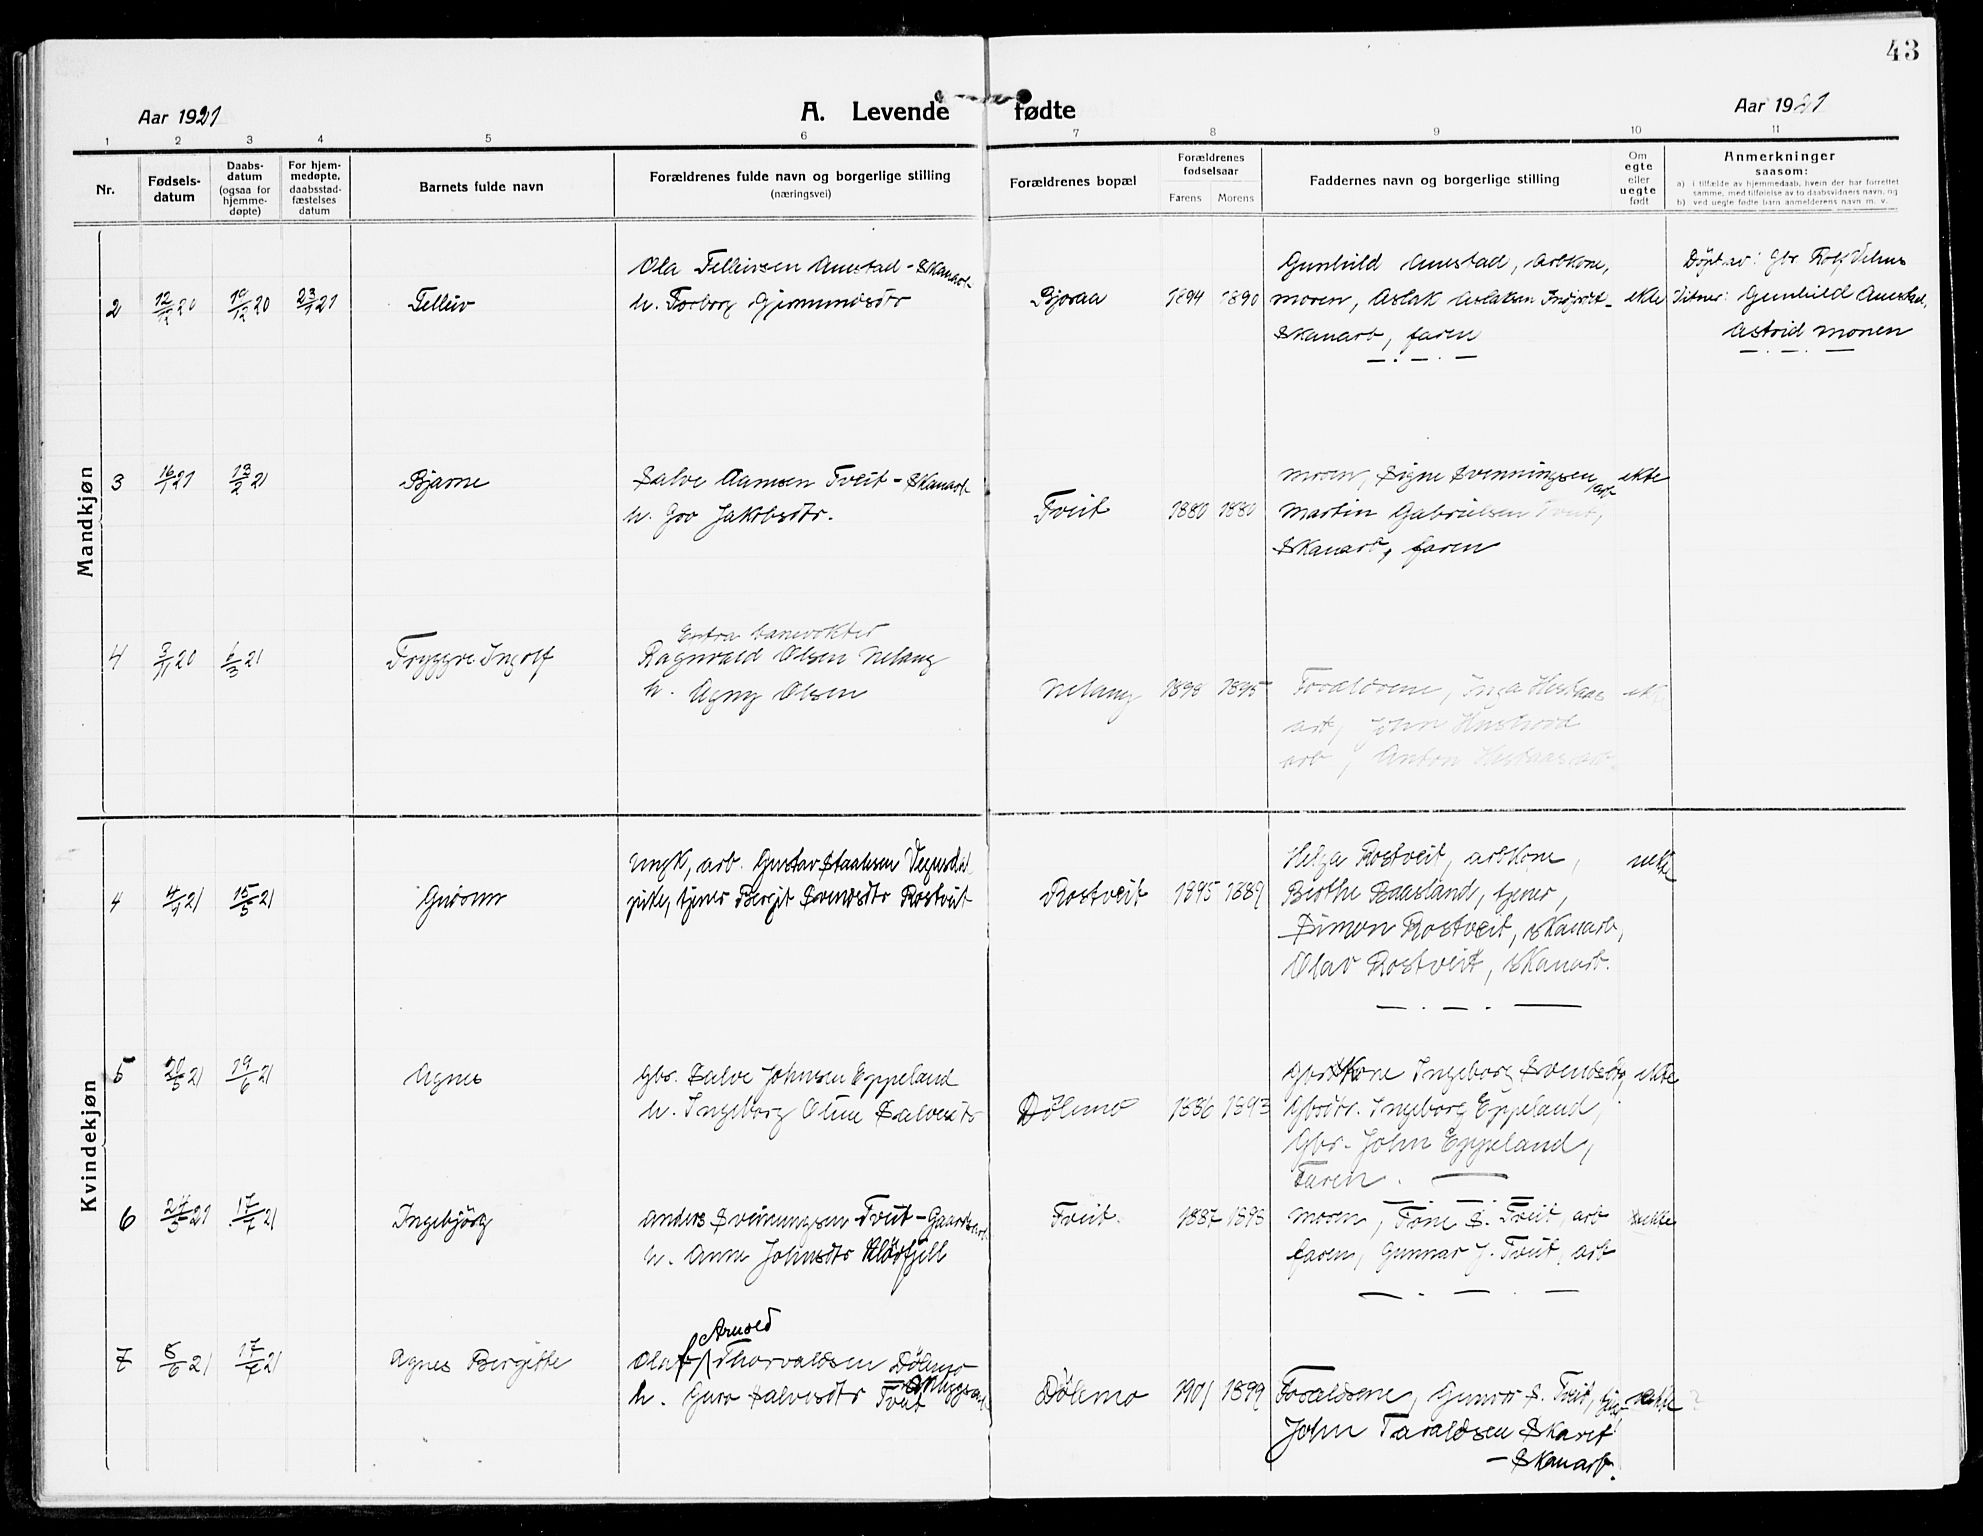 43
Aar 1921
A. Levende fødte
Aar 1921
1 2 3 4 5 6 7 8 9 10 11
Nr.
Fødsels-
datum
Daabs-
datum
(ogsaa for
hjemme-
døpte)
For hjem-
medøpte,
daabsstad-
fæstelses
datum
Barnets fulde navn
Forældrenes fulde navn og borgerlige stilling
(næringsvei)
Forældrenes bopæl
Forældrenes
fødselsaar
Farens Morens
Faddernes navn og borgerlige stilling
Om
egte
eller
uegte
født
Anmerkninger
saasom:
a) i tilfælde av hjemmedaab, hvem der har forrettet
samme, med tilføielse av to daabsvidners navn, og
b) ved uegte fødte barn anmelderens navn m. v.
Mandkjøn
2 12/12 20 19/12 20 23/1 21 Tellev
Ola Tellevsen Austad - Skanarb
h. Torborg Gjermundsdtr
Bjoraa 1894 1890
Gunhild Austad, arbkone,
moren, Aslak Aslaksen
Skanarb, faren
ekte
Døpt av: Gbr
Vitner: Gunhild Austad,
Astrid monen
3 16/1 21 13/2 21 Bjarne
Salve Aamsen Tveit - Skanarb
h. Gro Jakobsdtr.
Tveit 1880 1880
moren, Signe Svenningsen arb
Martin Gabrielsen Tveit,
Skanarb, faren
ekte
4 3/11 20 6/3 21 Tryggve Ingolf
Extra banevokter
Ragnvald Olsen Nelaug
h. Agny Olsen
Nelaug 1898 1895
Forældrene, Inga Hestaas
arb, John
arb, Anton Hestaas arb.
ekte
Kvindekjøn
4 4/1 21 15/5 21
ungk, arb. Gustav Staalesen
pike, tjener Bergit Svendsdtr Rostveit
Rostveit 1895 1889
Helga Rostveit, arbkone,
Berthe Baasland, tjener,
Simon Rostveit, skanarb,
Olav Rostveit, skanarb.
uekte
5 19/6 21 Agnes
Gbr. Salve Johnsen Eppeland
h. Ingeborg Oline Salvesdtr
Dølemo 1886 1893
Gbrkone Ingeborg Svendsdtr
Gbrdtr. Ingeborg Eppeland,
Gbr. John Eppeland,
Faren.
ekte
6 24/5 21 17/7 21 Ingebjørg
Anders Sveinungsen Tveit - Gaardsarb.
h. Anne Johnsdtr
Tveit. 1887 1898
moren, Tone S. Tveit, arb
faren, Gunnar J. Tveit, arb
ekte
7 8/6 21 17/7 21 Agnes Bergitte
Arnold
Olaf Thorvaldsen Dølemo
h. Guro Salvesdtr Tveit
Dølemo 1901 1899
Forældrene, Gunvor S. Tveit,
John Taraldsen Skaret
- Skanarb.
ekte